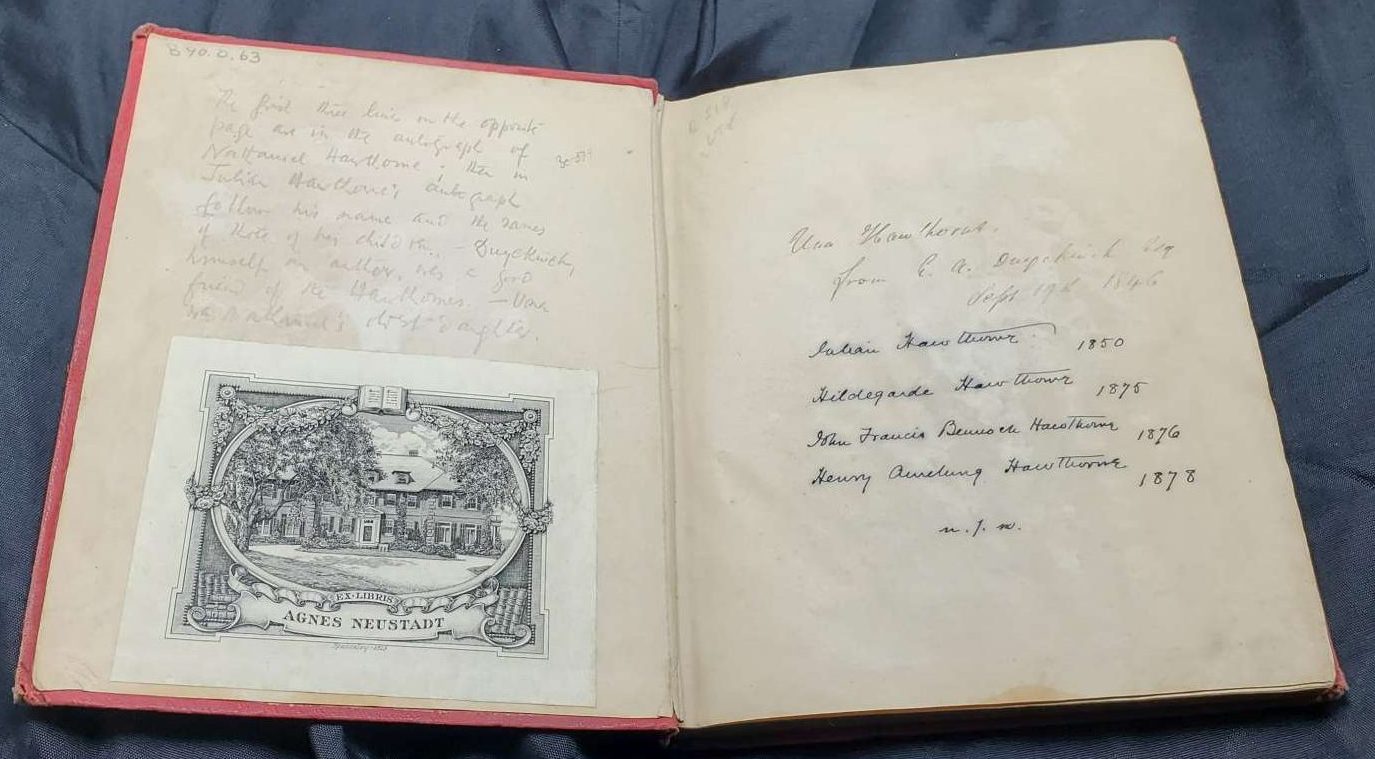 840.0.63
The first three lines on the opposite
page are in the autograph of
Nathaniel Hawthorne; then in
Julian Hawthorne's autograph
follow his name and the names
of three of his children. — Duyckinck,
himself an author, was a good
friend of the Hawthornes. — Una
was Nathaniel's first daughter.
EX·LIBRIS
AGNES NEUSTADT
Una Hawthorne.
from E. A. Duyckinck Esq
Sept 19th 1846
Julian Hawthorne 1850
Hildegarde Hawthorne 1875
John Francis Bennoch Hawthorne 1876
Henry Amelung Hawthorne 1878
n. j. m.